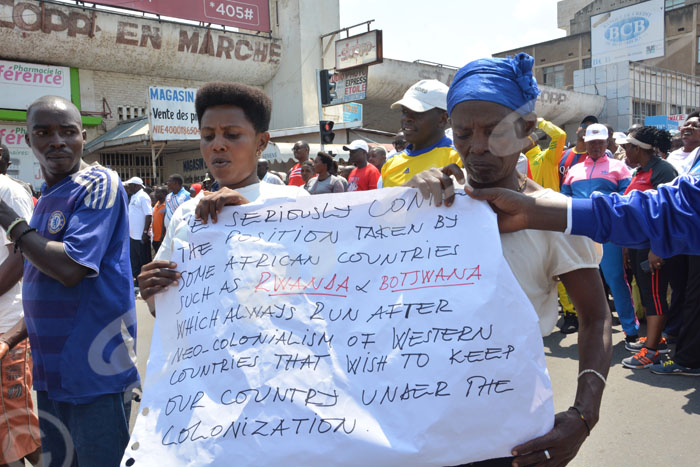 *405#
LOPPI EN MARCHÉ
BCB
Pharmacie la
férence
férence
MAGASIN
Vente des
EXPRESS
ETOILE
SERIOUSLY
THE POSITION TAKEN BY
SOME AFRICAN COUNTRIES
SUCH AS RWANDA & BOTJWANA
WHICH ALWAYS RUN AFTER
NEO-COLONIALISM OF WESTERN
COUNTRIES THAT WISH TO KEEP
OUR COUNTRY UNDER THE
COLONIZATION.